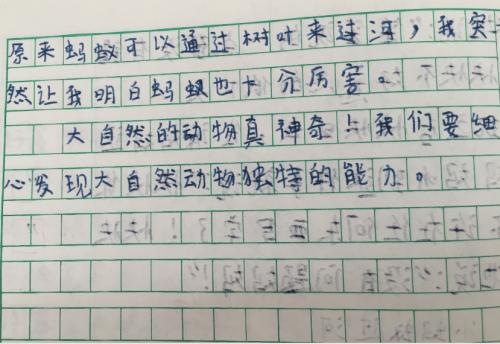 原来蚂蚁可以通过树叶来过河，我突
然让我明白蚂蚁也十分厉害。
大自然的动物真神奇，我们要细
心发现大自然动物独特的能力。